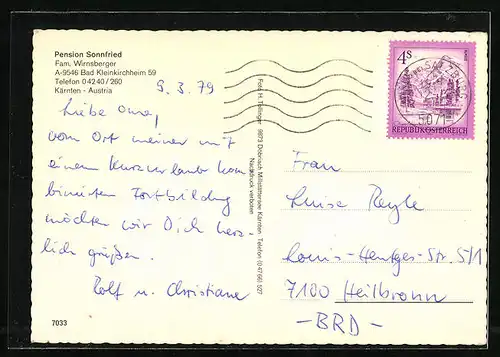 Pension Sonnfried
Fam. Wirnsberger
A-9546 Bad Kleinkirchheim 59
Telefon 0 42 40 / 260
Kärnten - Austria
9.3.79
Liebe Oma,
vom Ort meiner mit
einem Kurzurlaub kom-
binierten Fortbildung
möchten wir Dich herz-
lich grüßen.
Rolf u. Christiane
7033
Foto H. Thellinger 9873 Döbriach Millstättersee Kärnten, Telefon (0 47 66) 527
Nachdruck verboten
4S
REPUBLIK ÖSTERREICH
5071
Frau
Luise
Louis-Hentges-Str. 5/1
7100 Heilbronn
-BRD-